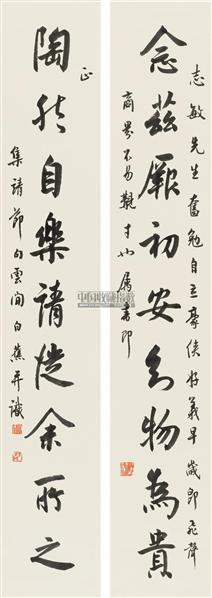 志敏先生奮勉自立豪俠好義早歲即飛聲
念茲厥初安知物為貴
商界不易覯才也屬書即
正
陶然自樂請從余所之
集靖節句雲間白蕉并識